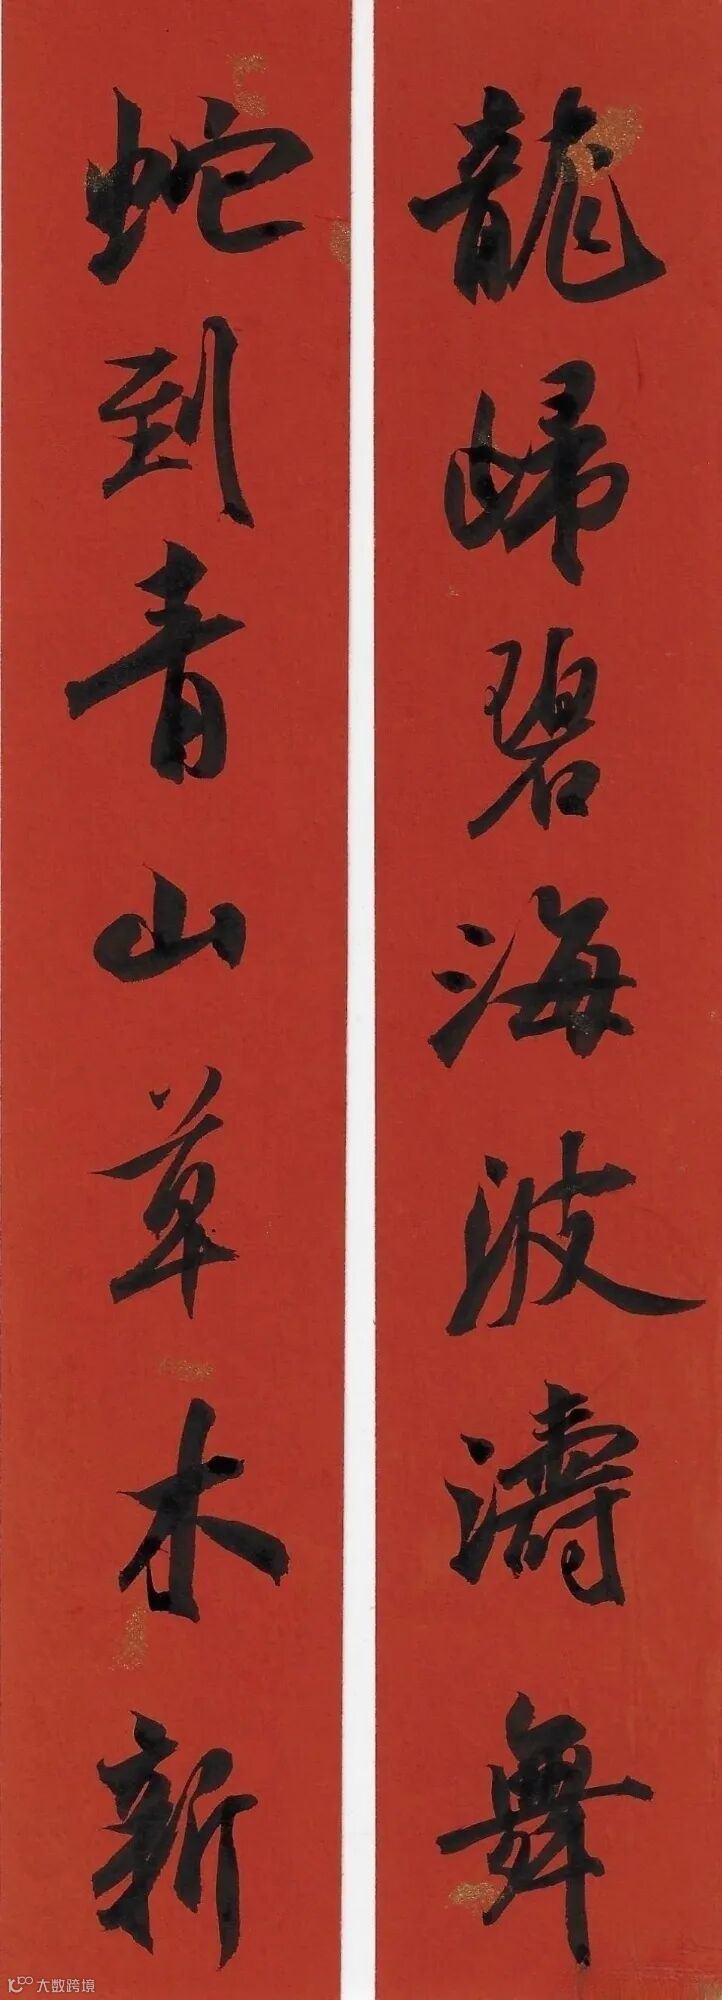 龍歸碧海波濤舞
蛇到青山草木新
大数跨境